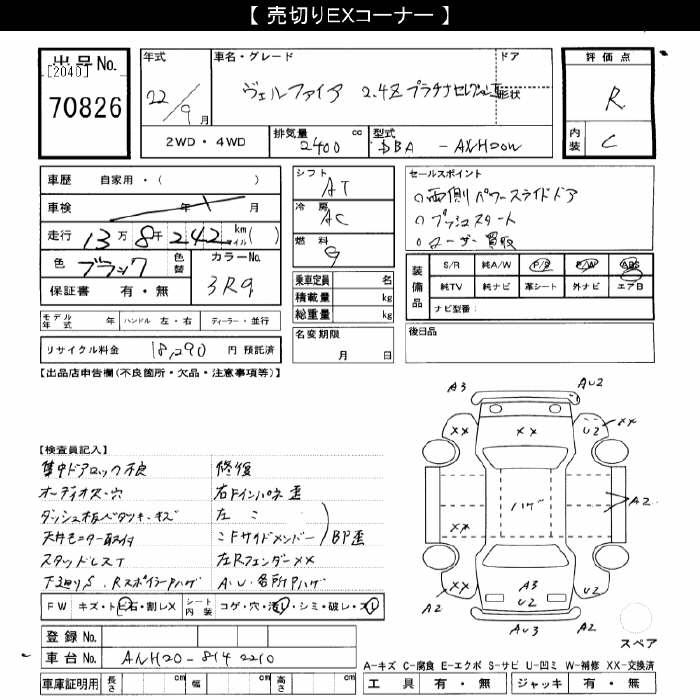 【 売切りEXコーナー 】
出品No.
[2040]
70826
年式
22/9月
車名・グレード
ヴェルファイア 2.4Z プラチナセレクションⅡ
ドア
形状
2WD・4WD
排気量
2400 cc
型式
DBA - ANH20W
評価点
R
内装
C
車歴 自家用・( )
車検 年 月
走行 13万8千242 km( )
マイル
色 ブラック
色替
カラーNo.
3R9
保証書 有・無
モデル年式 年 ハンドル 左・右 ディーラー・並行
リサイクル料金 18,290 円 預託済
シフト
AT
冷房
AC
燃料
G
乗車定員 名
積載量 kg
総重量 kg
名変期限
月 日
セールスポイント
○両側パワースライドドア
○プッシュスタート
○ユーザー買取
装備品
S/R 純A/W P/S P/W ABS
純TV 純ナビ 革シート 外ナビ エアB
ナビ型番:
後日品
【出品店申告欄(不良箇所・欠品・注意事項等)】
【検査員記入】
集中ドアロック不良
オーディオス、穴
ダッシュ板ベタツキ、キズ
天井モニター取付
スタッドレスT
下廻りS、RスポイラーPハゲ
修復
右Fインパネ歪
左 〃
〃Fサイドメンバー
BP歪
左Rフェンダー××
A・U・各所Pハゲ
FW キズ・ト ヒ石・割レX
シート内装 コゲ・穴・汚レ・シミ・破レ・スレ
登録No.
車台No. ANH20-8142210
車庫証明用 長さ cm 幅 cm 高さ cm
A3
AU2
××
××
U2
××
ハゲ
A2
××
A3
U2
××
U2
A2
A2
AU3
スペア
A-キズ C-腐食 E-エクボ S-サビ U-凹ミ W-補修 XX-交換済
工具 有・無 ジャッキ 有・無